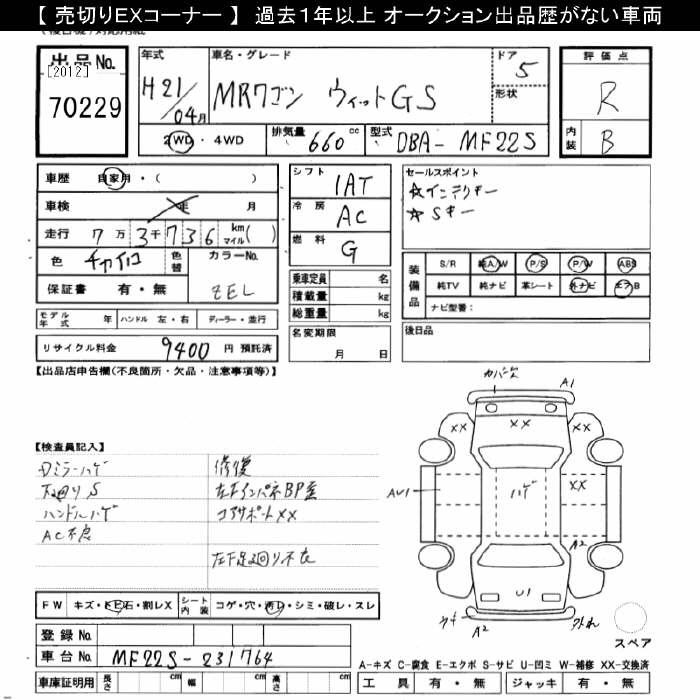 【 売切りEXコーナー 】 過去1年以上 オークション出品歴がない車両
出品No.
[2012]
70229
年式
H21/04月
車名・グレード
MRワゴン ウィットGS
ドア
5
形状
評価点
R
内装
B
2WD ・ 4WD
排気量 660 cc
型式 DBA- MF22S
車歴 自家用・( )
車検 年 月
走行 7万3千736 km マイル( )
色 チャイロ
色替
カラーNo.
ZEL
保証書 有・無
シフト
IAT
冷房
AC
燃料
G
セールスポイント
☆インテリキー
☆Sキー
乗車定員 名
積載量 kg
総重量 kg
名変期限
月 日
装備品
S/R 純A/W P/S P/W ABS
純TV 純ナビ 革シート 外ナビ エアB
ナビ型番:
後日品
モデル年式 年 ハンドル 左・右 ディーラー・並行
リサイクル料金 9400 円 預託済
【出品店申告欄(不良箇所・欠品・注意事項等)】
【検査員記入】
Dミラーハゲ
下廻りS
ハンドルハゲ
AC不良
修復
左FインパネBP歪
コアサポートXX
左F足廻り不良
カバーXX
A1
XX
XX
XX
AU1
ハゲ
A2
U1
A2
FW キズ・トビ石・割レX
シート内装 コゲ・穴・汚レ・シミ・破レ・スレ
スペア
登録No.
車台No. MF22S-231764
車庫証明用 長さ cm 幅 cm 高さ cm
A-キズ C-腐食 E-エクボ S-サビ U-凹ミ W-補修 XX-交換済
工具 有・無 ジャッキ 有・無